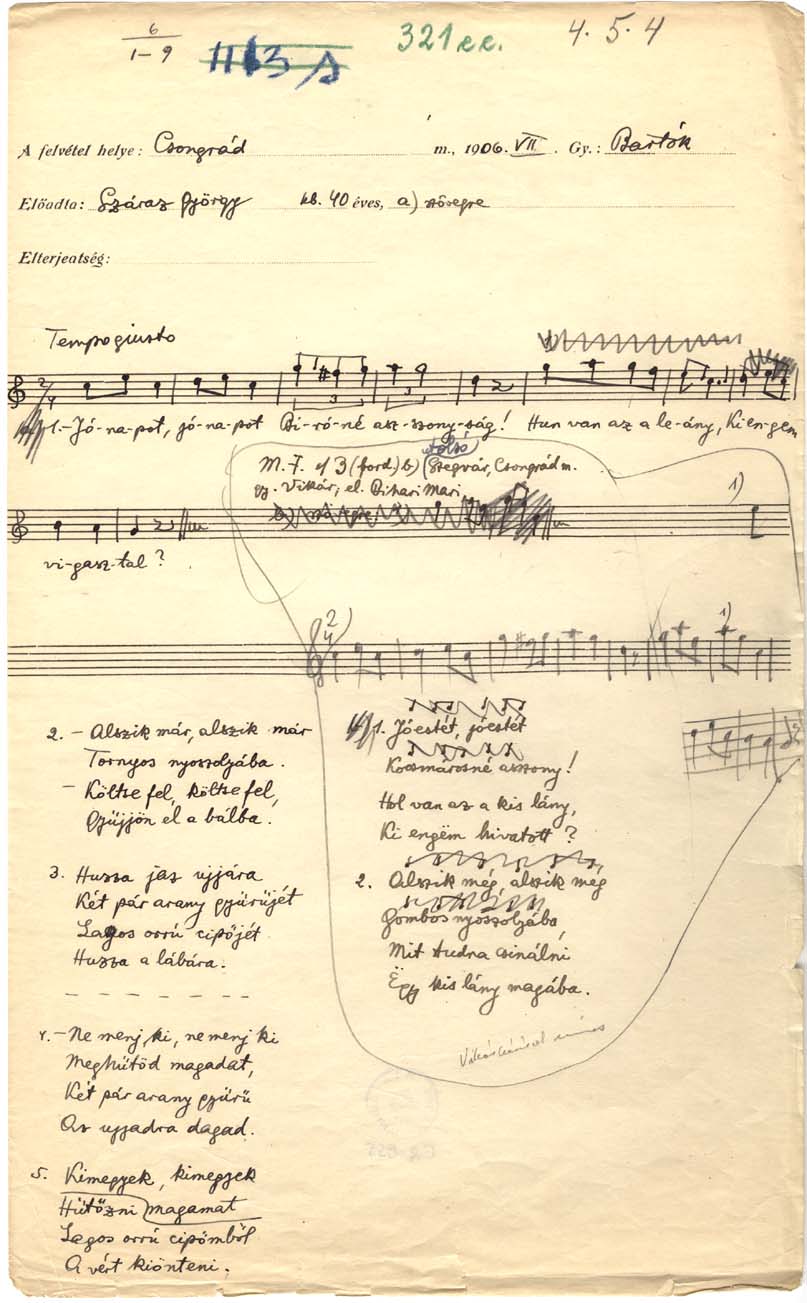 6
1-9
1113
321 e.e.
4. 5. 4
A felvétel helye: Csongrád m., 1906. VII. Gy.: Bartók
Előadta: Száraz György kb. 40 éves, a) szövegre
Elterjeatség:
Tempo giusto
2/4
3 3
1. – Jó-na-pot, jó-na-pot Bi-ró-né asz-szony-ság! Hun van az a le-ány, Ki en-gem
M. F. 3 (ford) b) (Szegvár, Csongrád m.
gy. Vikár; el. Bihari Mari
1)
vi-gasz-tal?
2/4
1)
2. – Alszik már, alszik már
Tornyos nyoszolyába.
– Költse fel, költse fel,
Gyüjjön el a bálba.
3. Huzza jaz ujjára
Két pár arany gyürüjét
Lagos orrú cipőjét
Huzza a lábára.
4. – Ne menj ki, ne menj ki
Meghütöd magadat,
Két pár arany gyürü
Az ujjadra dagad.
5. Kimegyek, kimegyek
Hütőzni magamat
Lagos orrú cipőmből
A vért kiönteni.
1. Jóestét, jóestét
Kocsmárosné asszony!
Hol van az a kis lány,
Ki engëm hivatott?
2. Alszik még, alszik még
Gombos nyoszolyába,
Mit tudna csinálni
Ëgy kis lány magába.